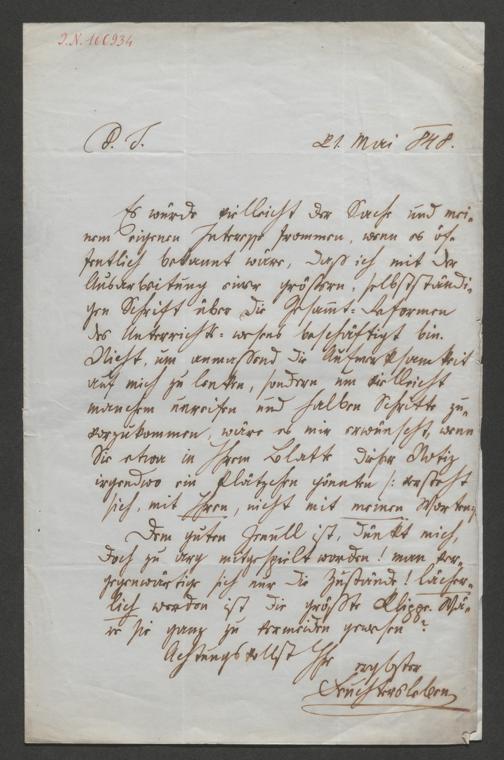 J.N. 166934
P. T.
21. Mai 848.
Es würde vielleicht der Sache und mei-
nem eigenen Interesse frommen, wenn es öf-
fentlich bekannt wäre, daß ich mit der
Ausarbeitung einer größern, selbstständi-
gen Schrift über die Gesammt-Reformen
des Unterrichts-wesens beschäftigt bin.
Nicht, um anmaßend die Aufmerksamkeit
auf mich zu lenken, sondern um vielleicht
manchem unreifen und halben Schritte zu-
vorzukommen, wäre es mir erwünscht, wenn
Sie etwa in Ihrem Blatte dieser Notiz
irgendwo ein Plätzchen gönnten /: versteht
sich, mit Ihren, nicht mit meinen Worten.
Dem guten ist, dünkt mich,
doch zu arg mitgespielt worden! man ver-
gegenwärtige sich nur die Zustände! lächer-
lich werden ist die größte Klippe. Wä-
re sie ganz zu vermeiden gewesen?
Achtungsvollst Ihr
ergbster
Feuchtersleben